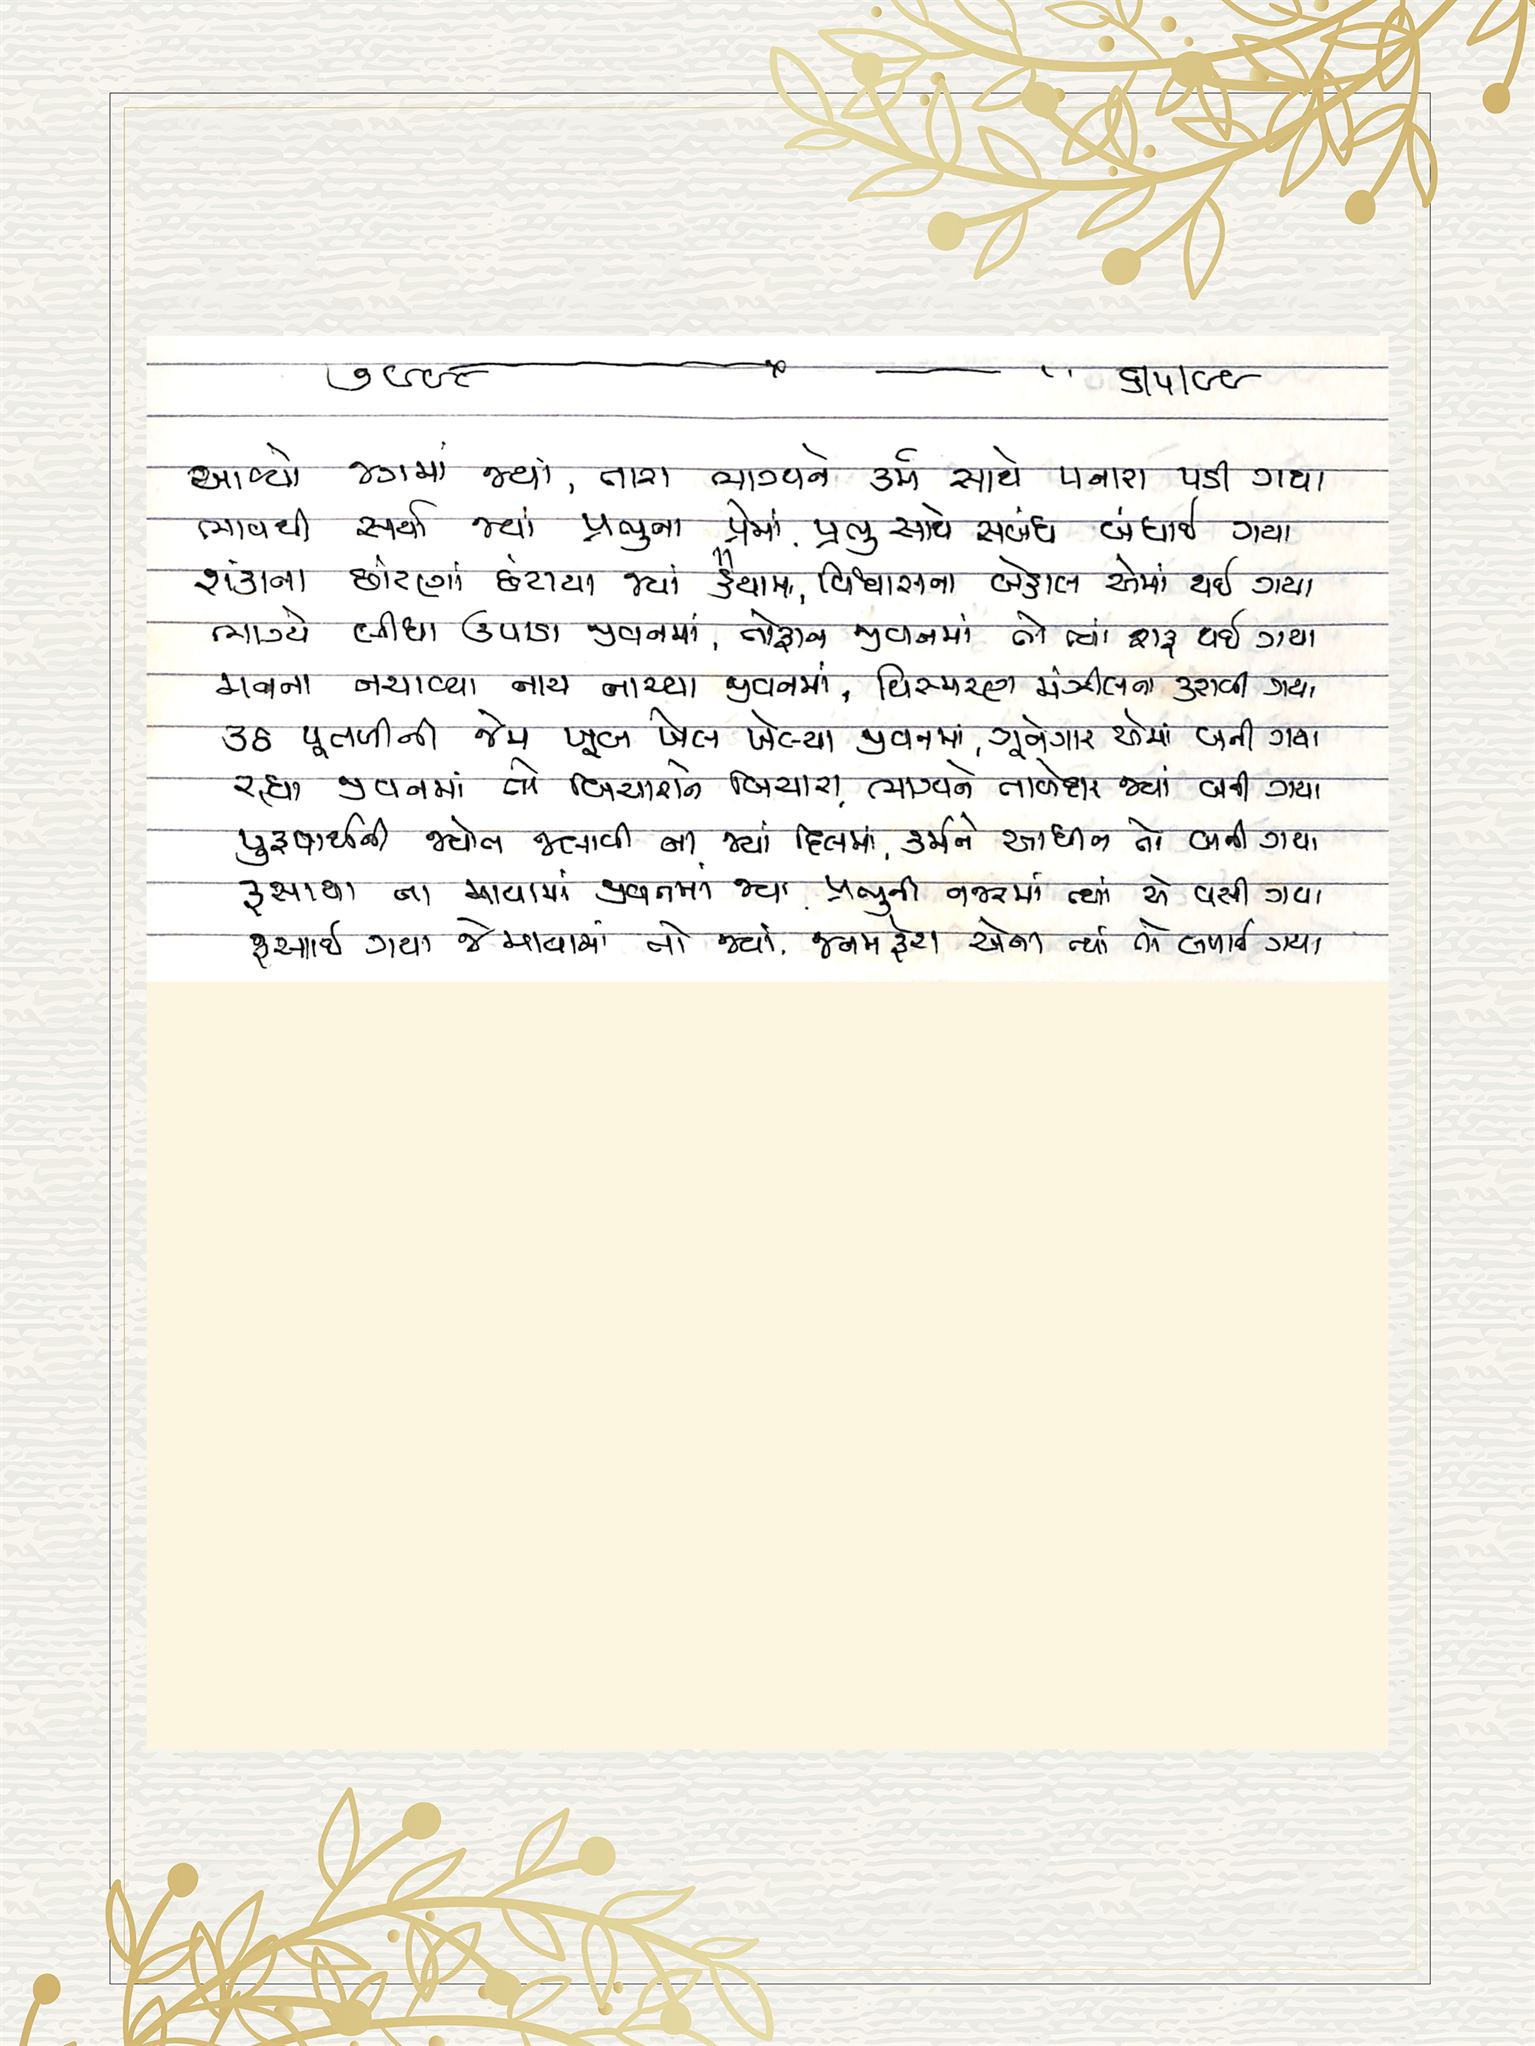 ૭૯૯૯ — — " ૬/૫/૯૯
આવ્યો જગમાં જ્યાં, તારા ભાગ્યને કર્મ સાથે પનારા પડી ગયા
ભાવથી સર્યા જ્યાં પ્રભુના પ્રેમાં, પ્રભુ સાથે સબંધ બંધાઈ ગયા
શંકાના છાંટણાં છંટાયા જ્યાં હૈયામાં, વિશ્વાસના બેહાલ એમાં થઈ ગયા
ભાગ્યે લીધા ઉપાડા જીવનમાં, તોફાન જીવનમાં તો ત્યાં શરૂ થઈ ગયા
મનના નચાવ્યા નાચ નાચ્યા જીવનમાં, વિસ્મરણ મંઝીલના કરાવી ગયા
કઠ પૂતળીની જેમ ખૂબ ખેલ ખેલ્યા જીવનમાં, ગૂનેગાર એમાં બની ગયા
રહ્યા જીવનમાં તો બિચારાને બિચારા, ભાગ્યને તાબેદાર જ્યાં બની ગયા
પુરૂષાર્થની જ્યોત જલાવી ના જ્યાં દિલમાં, કર્મને આધીન તો બની ગયા
ફસાયા ના માયામાં જીવનમાં જ્યાં, પ્રભુની નજરમાં ત્યાં એ વસી ગયા
ફસાઈ ગયા જે માયામાં તો જ્યાં, જનમફેરા એના ત્યાં તો લખાઈ ગયા